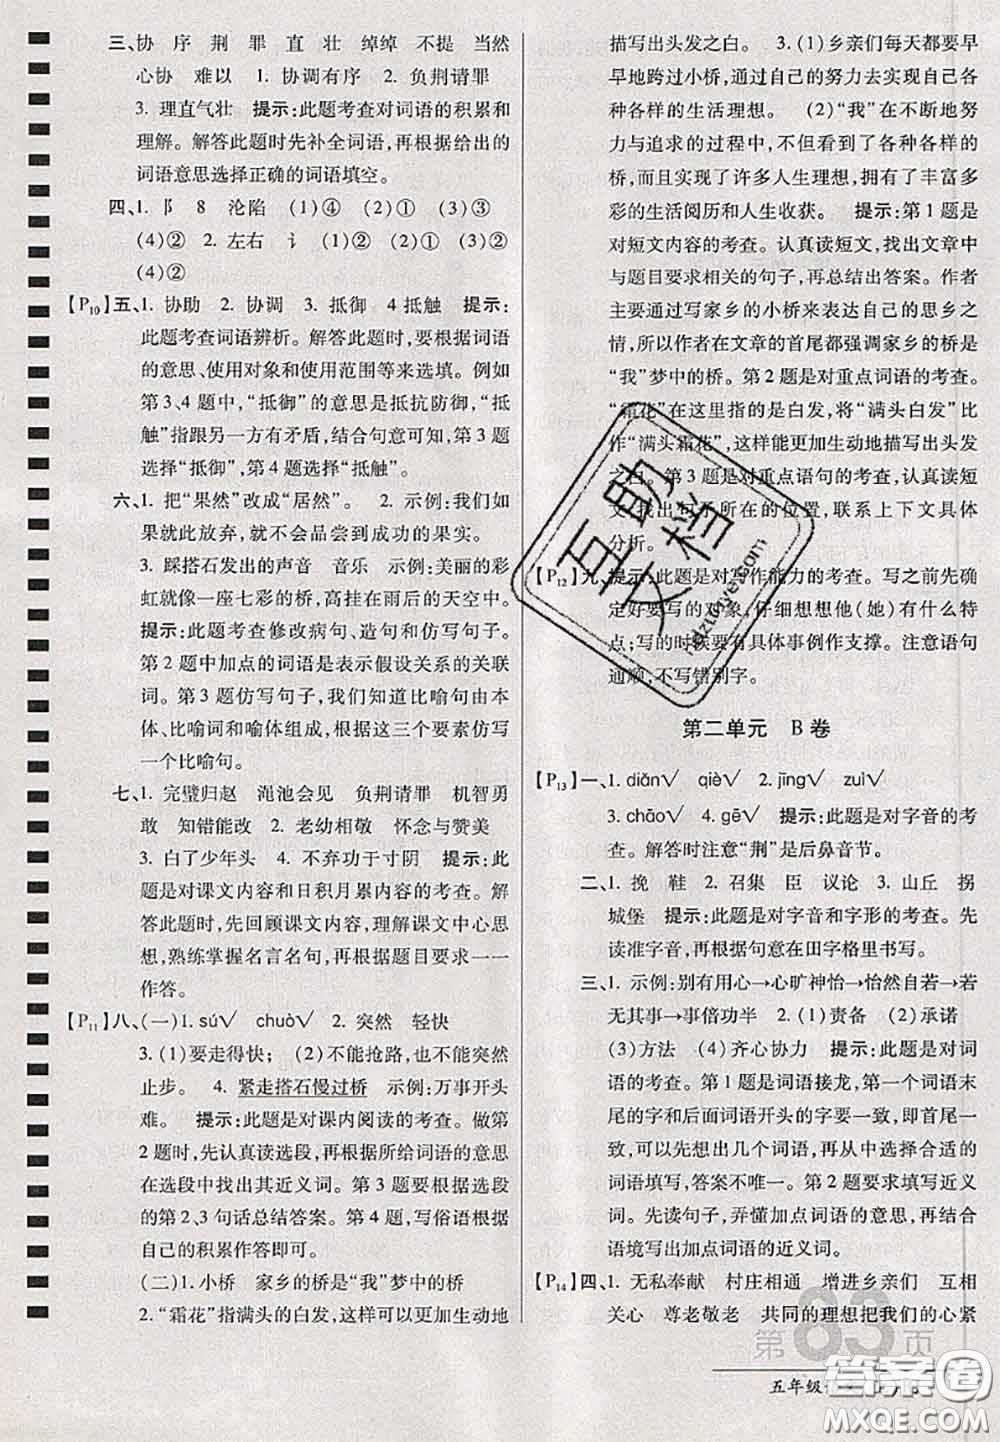 三、协 序 荆 罪 直 壮 绰绰 不提 当然
心协 难以 1. 协调有序 2. 负荆请罪
3. 理直气壮 提示:此题考查对词语的积累和
理解。解答此题时先补全词语,再根据给出的
词语意思选择正确的词语填空。
四、1. 阝 8 沦陷 (1)④ (2)① (3)③
(4)② 2. 左右 讠 (1)② (2)① (3)③
(4)②
【P10】五、1. 协助 2. 协调 3. 抵御 4 抵触 提示:
此题考查词语辨析。解答此题时,要根据词语
的意思、使用对象和使用范围等来选填。例如
第 3、4 题中,“抵御”的意思是抵抗防御,“抵
触”指跟另一方有矛盾,结合句意可知,第 3 题
选择“抵御”,第 4 题选择“抵触”。
六、1. 把“果然”改成“居然”。 2. 示例:我们如
果就此放弃,就不会品尝到成功的果实。
3. 踩搭石发出的声音 音乐 示例:美丽的彩
虹就像一座七彩的桥,高挂在雨后的天空中。
提示:此题考查修改病句、造句和仿写句子。
第 2 题中加点的词语是表示假设关系的关联
词。第 3 题仿写句子,我们知道比喻句由本
体、比喻词和喻体组成,根据这三个要素仿写
一个比喻句。
七、1. 完璧归赵 渑池会见 负荆请罪 机智勇
敢 知错能改 2. 老幼相敬 怀念与赞美
3. 白了少年头 4. 不弃功于寸阴 提示:此
题是对课文内容和日积月累内容的考查。解
答此题时,先回顾课文内容,理解课文中心思
想,熟练掌握名言名句,再根据题目要求一一
作答。
【P11】八、(一)1. sú√ chuò√ 2. 突然 轻快
3. (1)要走得快; (2)不能抢路,也不能突然
止步。 4. 紧走搭石慢过桥 示例:万事开头
难。 提示:此题是对课内阅读的考查。做第
2 题时,先认真读选段,再根据所给词语的意思
在选段中找出其近义词。第 3 题要根据选段
的第 2、3 句话总结答案。第 4 题,写俗语根据
自己的积累作答即可。
(二)1. 小桥 家乡的桥是“我”梦中的桥
2. “霜花”指满头的白发,这样可以更加生动地
描写出头发之白。 3. (1)乡亲们每天都要早
早地跨过小桥,通过自己的努力去实现自己各
种各样的生活理想。 (2)“我”在不断地努力
与追求的过程中,不但经历了各种各样的
桥,实现了许多人生理想,还拥有了丰富多
彩的生活阅历和人生收获。 提示:第 1 题是
对短文内容的考查。认真读短文,找出文章中
与题目要求相关的句子,再总结出答案。作者
主要通过写家乡的小桥来表达自己的思乡之
情,所以作者在文章的首尾都强调家乡的桥是
“我”梦中的桥。第 2 题是对重点词语的考查。
“霜花”在这里指的是白发,将“满头白发”比
作“满头霜花”,这样能更加生动地描写出头发
之白。第 3 题是对重点语句的考查,认真读短
文,找出句子所在的位置,联系上下文具体
分析。
【P12】九、提示:此题是对写作能力的考查。写之前先确
定好要写的对象,仔细想想他(她)有什么特
点;写的时候要有具体事例作支撑。注意语句
通顺,不写错别字。
第二单元 B 卷
【P13】一、1. diān√ qiè√ 2. jīng√ zuì√
3. chāo√ 4. gē√ 提示:此题是对字音的考
查。解答时注意“荆”是后鼻音节。
二、1. 挽 鞋 2. 召集 臣 议论 3. 山丘 拐
城堡 提示:此题是对字音和字形的考查。先
读准字音,再根据句意在田字格里书写。
三、1. 示例:别有用心→心旷神怡→怡然自若→若
无其事→事倍功半 2. (1)责备 (2)承诺
(3)方法 (4)齐心协力 提示:此题是对词
语的考查。第 1 题是词语接龙,第一个词语末
尾的字和后面词语开头的字要一致,即首尾一
致,可以先想出几个词语,再从中选择合适的
词语填写,答案不唯一。第 2 题要求填写近义
词。先读句子,弄懂加点词语的意思,再根据
语境写出加点词语的近义词。
【P14】四、1. 无私奉献 村庄相通 增进乡亲们 互相
关心 尊老敬老 共同的理想把我们的心紧
第 83 页
五年级
互助
文档
答案圈
MXQE.COM